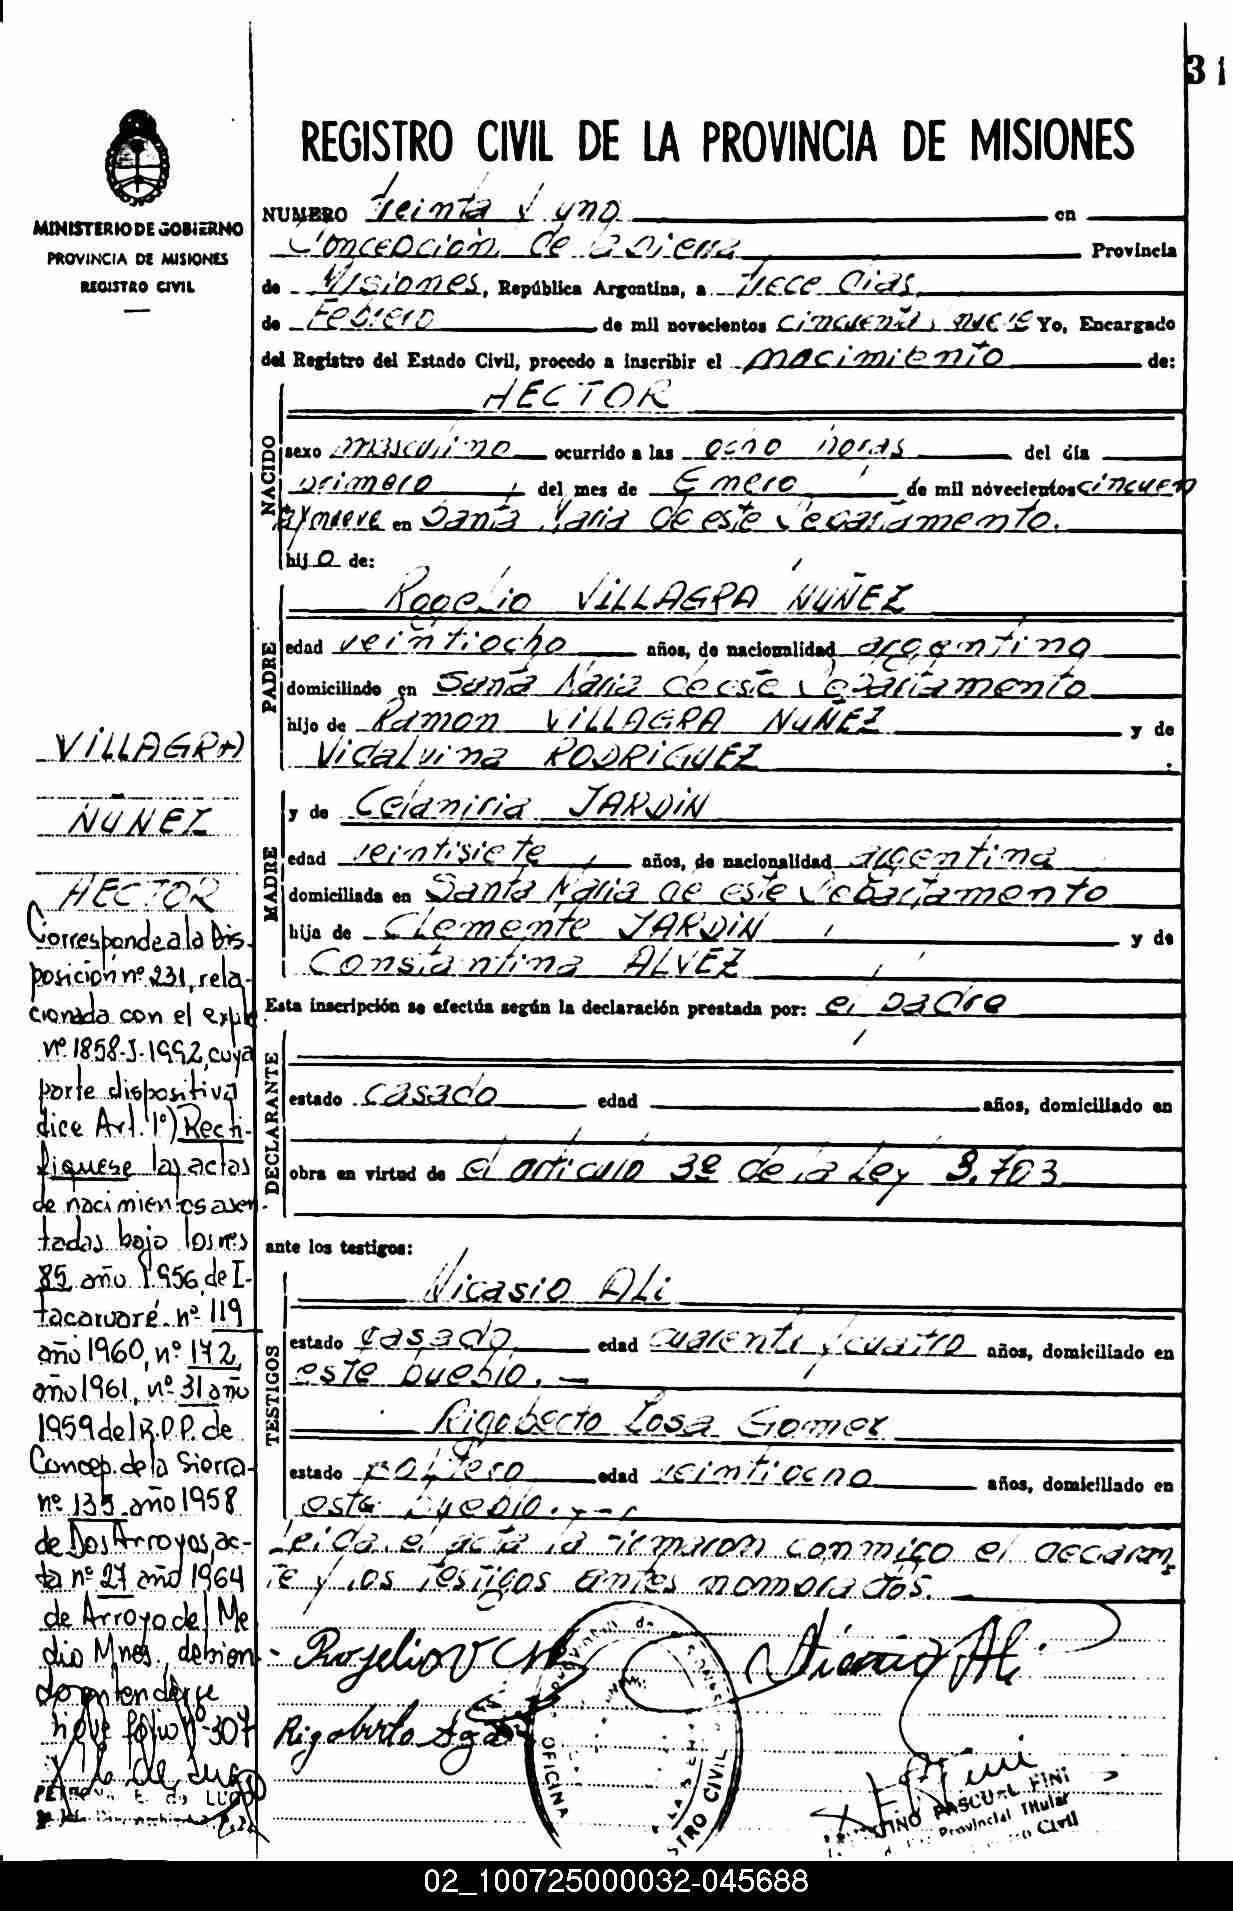 31
REGISTRO CIVIL DE LA PROVINCIA DE MISIONES
MINISTERIO DE GOBIERNO
PROVINCIA DE MISIONES
REGISTRO CIVIL
NUMERO treinta y uno en
Concepción de la Sierra Provincia
de Misiones, República Argentina, a trece dias
de Febrero de mil novecientos cincuenta y nueve Yo, Encargado
del Registro del Estado Civil, procedo a inscribir el nacimiento de:
NACIDO
HECTOR
sexo masculino ocurrido a las ocho horas del día
primero del mes de Enero de mil novecientos cincuen
ta y nueve en Santa Maria de este Departamento.
hijo de:
PADRE
Rogelio VILLAGRA NUÑEZ
edad veintiocho años, de nacionalidad argentino
domiciliado en Santa Maria de este Departamento
hijo de Ramon VILLAGRA NUÑEZ y de
Vidalvina RODRIGUEZ
MADRE
y de Celaniria JARDIN
edad veintisiete años, de nacionalidad argentina
domiciliada en Santa Maria de este Departamento
hija de Clemente JARDIN y de
Constantina ALVEZ
Esta inscripción se efectúa según la declaración prestada por: el padre
DECLARANTE
estado casado edad años, domiciliado en
obra en virtud de el articulo 3º de la Ley 3.703
ante los testigos:
TESTIGOS
Nicasio ALi
estado casado edad cuarenta y cuatro años, domiciliado en
este pueblo. —
Rigoberto Sosa Gomez
estado soltero edad veintiocho años, domiciliado en
este pueblo. —
Leida el acta la firmaron conmigo el declaran
te y los testigos antes nombrados.
Rogelio V
Nicasio Ali
Rigoberto
OFICINA
REGISTRO CIVIL
PASCUAL FINI
Provincial Titular
Civil
VILLAGRA
NUÑEZ
HECTOR
Corresponde a la Dis-
posición nº 231, rela-
cionada con el expte
Nº 1858-J-1992, cuya
parte dispositiva
dice Art. 1º) Recti-
fiquese las actas
de nacimientos asen-
tadas bajo los nºs
85 año 1956 de I-
tacaruaré nº 119
año 1960, nº 172
año 1961, nº 31 año
1959 del R.P.P. de
Concep. de la Sierra-
nº 135 año 1958
de Dos Arroyos, ac-
ta nº 27 año 1964
de Arroyo del Me
dio Mnes. debien
do entenderse
sigue folio Nº 307
E. de LUGO
02_100725000032-045688